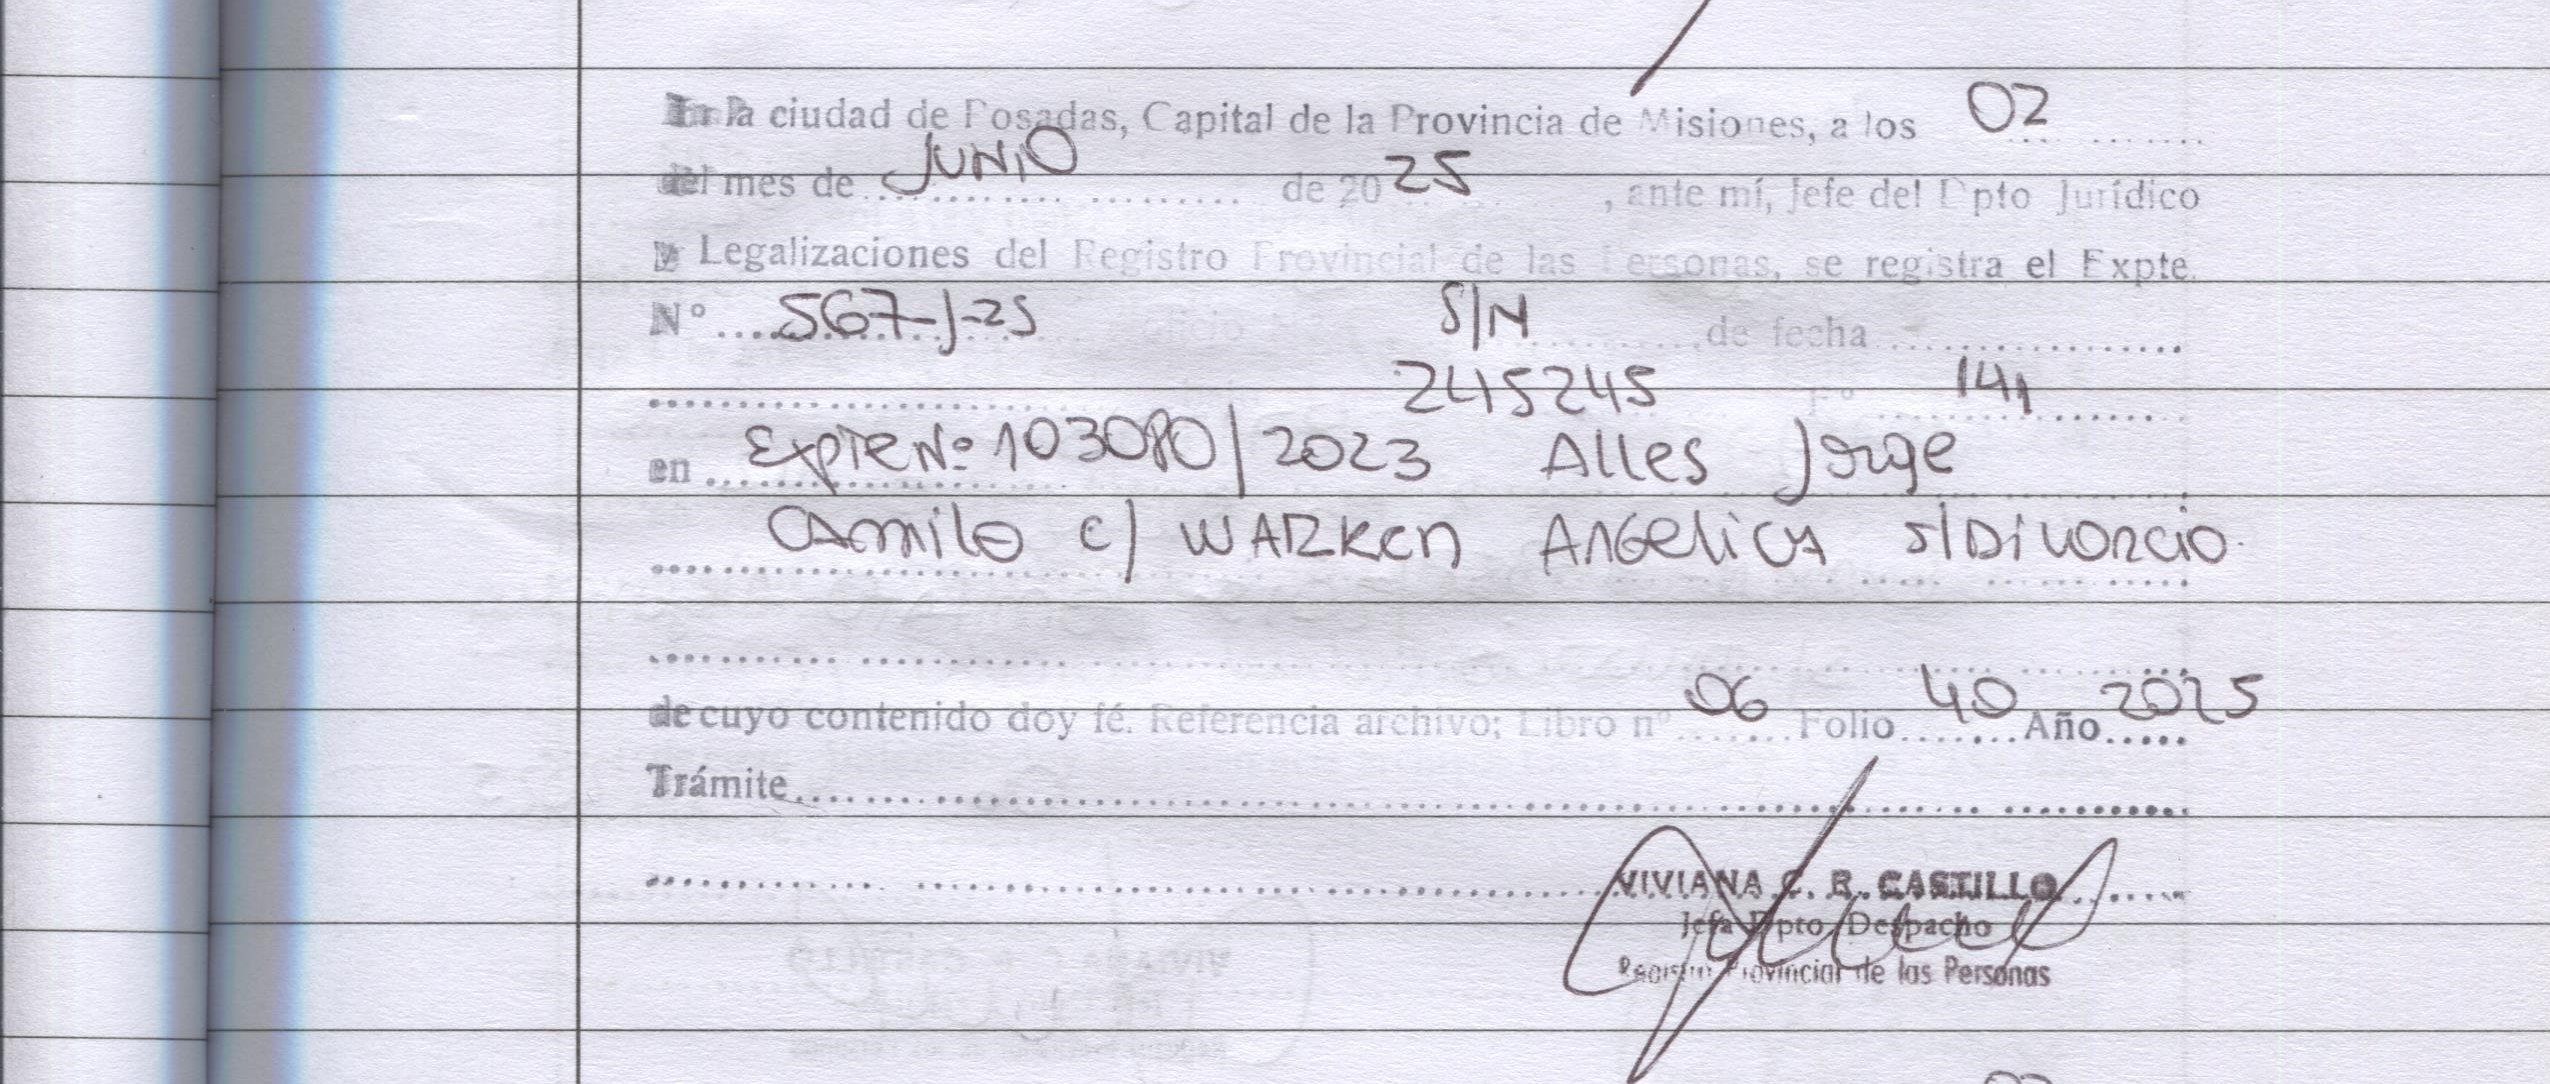 En la ciudad de Posadas, Capital de la Provincia de Misiones, a los 02
del mes de JUNIO de 2025, ante mí, Jefe del Dpto Jurídico
y Legalizaciones del Registro Provincial de las Personas, se registra el Expte.
Nº 567-J-25 S/N de fecha
245245 Fº 141
en Expte Nº: 103080/2023 Alles Jorge
Camilo c/ WARKEN ANGELICA s/DiVorcio.
de cuyo contenido doy fé. Referencia archivo; Libro nº 06 Folio 40 Año 2025
Trámite
VIVIANA C. R. CASTILLO
Jefa Dpto. Despacho
Registro Provincial de las Personas